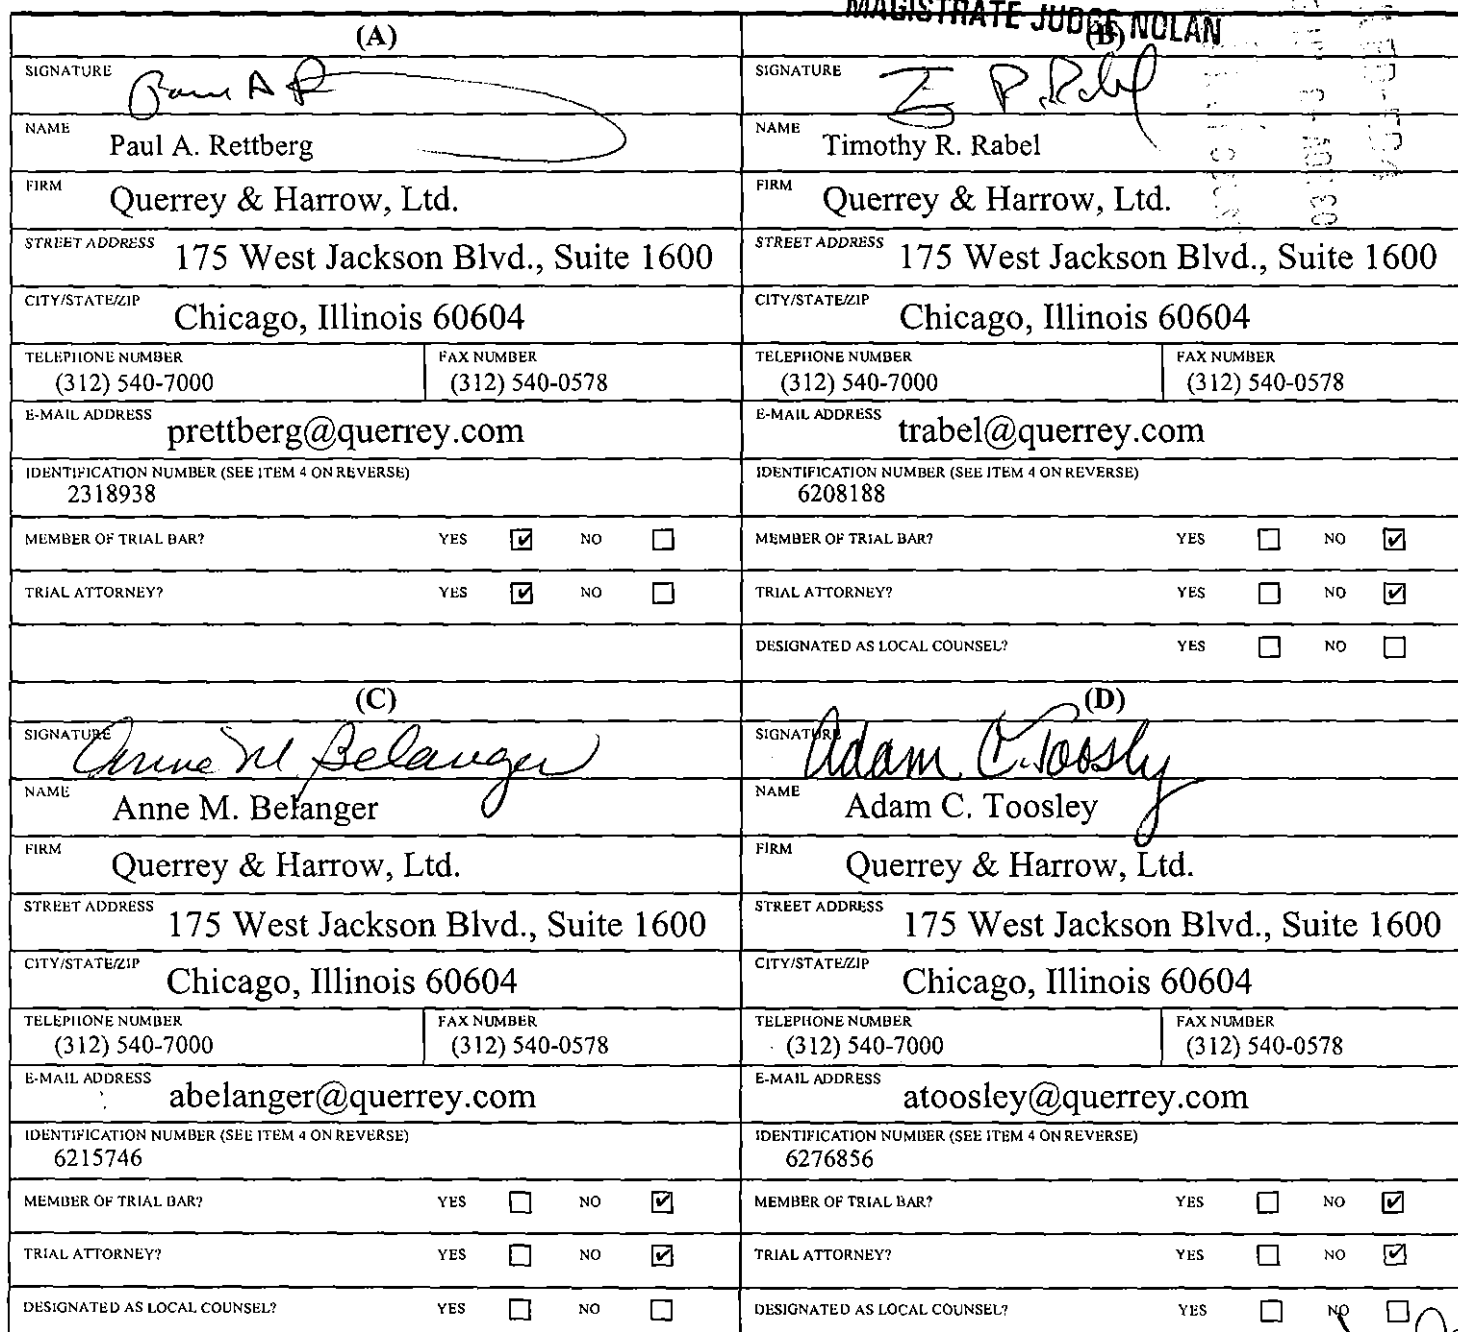 MAGISTRATE JUDGE NOLAN
(A)
SIGNATURE
NAME
Paul A. Rettberg
FIRM
Querrey & Harrow, Ltd.
STREET ADDRESS 175 West Jackson Blvd., Suite 1600
CITY/STATE/ZIP
Chicago, Illinois 60604
TELEPHONE NUMBER
(312) 540-7000
FAX NUMBER
(312) 540-0578
E-MAIL ADDRESS
prettberg@querrey.com
IDENTIFICATION NUMBER (SEE ITEM 4 ON REVERSE)
2318938
MEMBER OF TRIAL BAR? YES NO
TRIAL ATTORNEY? YES NO
(B)
SIGNATURE
NAME
Timothy R. Rabel
FIRM
Querrey & Harrow, Ltd.
STREET ADDRESS 175 West Jackson Blvd., Suite 1600
CITY/STATE/ZIP
Chicago, Illinois 60604
TELEPHONE NUMBER
(312) 540-7000
FAX NUMBER
(312) 540-0578
E-MAIL ADDRESS
trabel@querrey.com
IDENTIFICATION NUMBER (SEE ITEM 4 ON REVERSE)
6208188
MEMBER OF TRIAL BAR? YES NO
TRIAL ATTORNEY? YES NO
DESIGNATED AS LOCAL COUNSEL? YES NO
(C)
SIGNATURE
Anne M Belanger
NAME
Anne M. Belanger
FIRM
Querrey & Harrow, Ltd.
STREET ADDRESS 175 West Jackson Blvd., Suite 1600
CITY/STATE/ZIP
Chicago, Illinois 60604
TELEPHONE NUMBER
(312) 540-7000
FAX NUMBER
(312) 540-0578
E-MAIL ADDRESS
abelanger@querrey.com
IDENTIFICATION NUMBER (SEE ITEM 4 ON REVERSE)
6215746
MEMBER OF TRIAL BAR? YES NO
TRIAL ATTORNEY? YES NO
DESIGNATED AS LOCAL COUNSEL? YES NO
(D)
SIGNATURE
Adam C. Toosly
NAME
Adam C. Toosley
FIRM
Querrey & Harrow, Ltd.
STREET ADDRESS 175 West Jackson Blvd., Suite 1600
CITY/STATE/ZIP
Chicago, Illinois 60604
TELEPHONE NUMBER
(312) 540-7000
FAX NUMBER
(312) 540-0578
E-MAIL ADDRESS
atoosley@querrey.com
IDENTIFICATION NUMBER (SEE ITEM 4 ON REVERSE)
6276856
MEMBER OF TRIAL BAR? YES NO
TRIAL ATTORNEY? YES NO
DESIGNATED AS LOCAL COUNSEL? YES NO